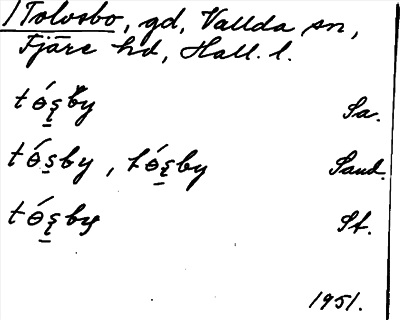 Tolvsbo, gd, Vallda sn,
Fjäre hd, Hall. l.
tǿs̨by Sa.
tǿs̨by, tǿs̨by Sand.
tǿs̨by St.
1951.